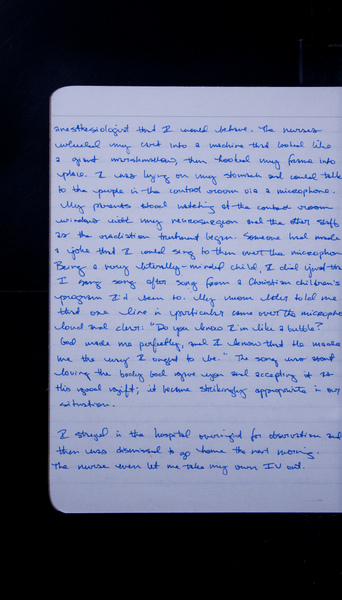 anesthesiologist that I would behave. The nurses
wheeled my cot into a machine that looked like
a giant marshmallow, then hooked my frame into
place. I was lying on my stomach and could talk
to the people in the control room via a microphone.
My parents stood watching at the control room
window with my neurosurgeon and the other staff
as the radiation treatment began. Someone had made
a joke that I could sing to them over the microphone.
Being a very literally-minded child, I did just that.
I sang song after song from a Christian children's
program I'd been to. My mom later told me
that one line in particular came over the microphone
loud and clear: "Do you know I'm like a bubble?
God made me perfectly, and I know that He made
me the way I ought to be." The song was about
loving the body God gave you and accepting it as
this good gift; it became strikingly appropriate in our
situation.
I stayed in the hospital overnight for observation and
then was dismissed to go home the next morning.
The nurse even let me take my own IV out.